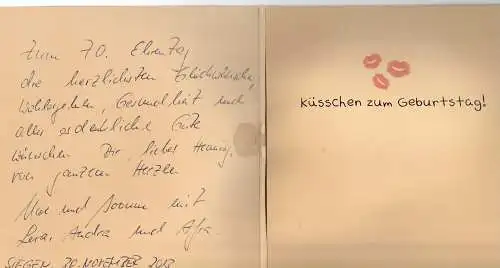 Zum 70. Ehrentag
die herzlichsten Glückwünsche,
Wohlergehen, Gesundheit und
alles erdenklich Gute
wünschen Dir, lieber Henning,
von ganzem Herzen
und mit
Lara, Andra und Afra
SIEGEN, 20. NOVEMBER 2013
küsschen zum Geburtstag!